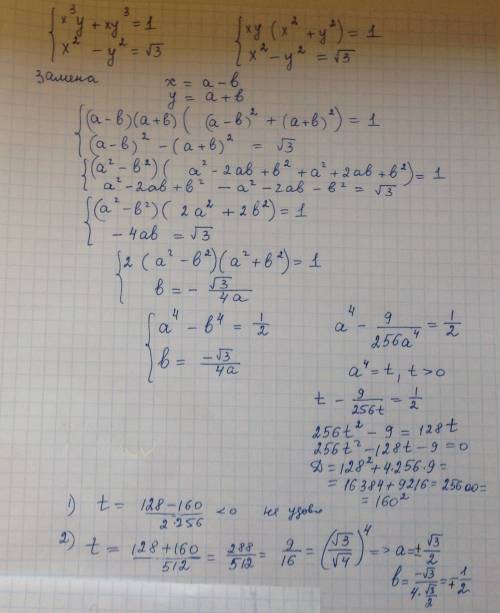 { x³y + xy³ = 1        { xy (x² + y²) = 1
{ x² − y² = √3        { x² − y² = √3
Замена    x = a − в
y = a + в
{ (a−в)(a+в)( (a−в)² + (a+в)² ) = 1
{ (a−в)² − (a+в)² = √3
{ (a²−в²)( a² − 2aв + в² + a² + 2aв + в² ) = 1
{ a² − 2aв + в² − a² − 2aв − в² = √3
{ (a²−в²)( 2a² + 2в² ) = 1
{ − 4aв = √3
{ 2 (a² − в²)(a² + в²) = 1
{ в = − √3/4a
{ a⁴ − в⁴ = 1/2
{ в = −√3/4a
a⁴ − 9/256a⁴ = 1/2
a⁴ = t, t > 0
t − 9/256t = 1/2
256t² − 9 = 128t
256t² − 128t − 9 = 0
D = 128² + 4·256·9 =
= 16384 + 9216 = 25600 =
= 160²
1) t = (128 − 160)/(2·256) < 0   не удовл
2) t = (128 + 160)/512 = 288/512 = 9/16 = (√3/√4)⁴ => a = ± √3/2
в = −√3/(4·√3/2) = ∓ 1/2